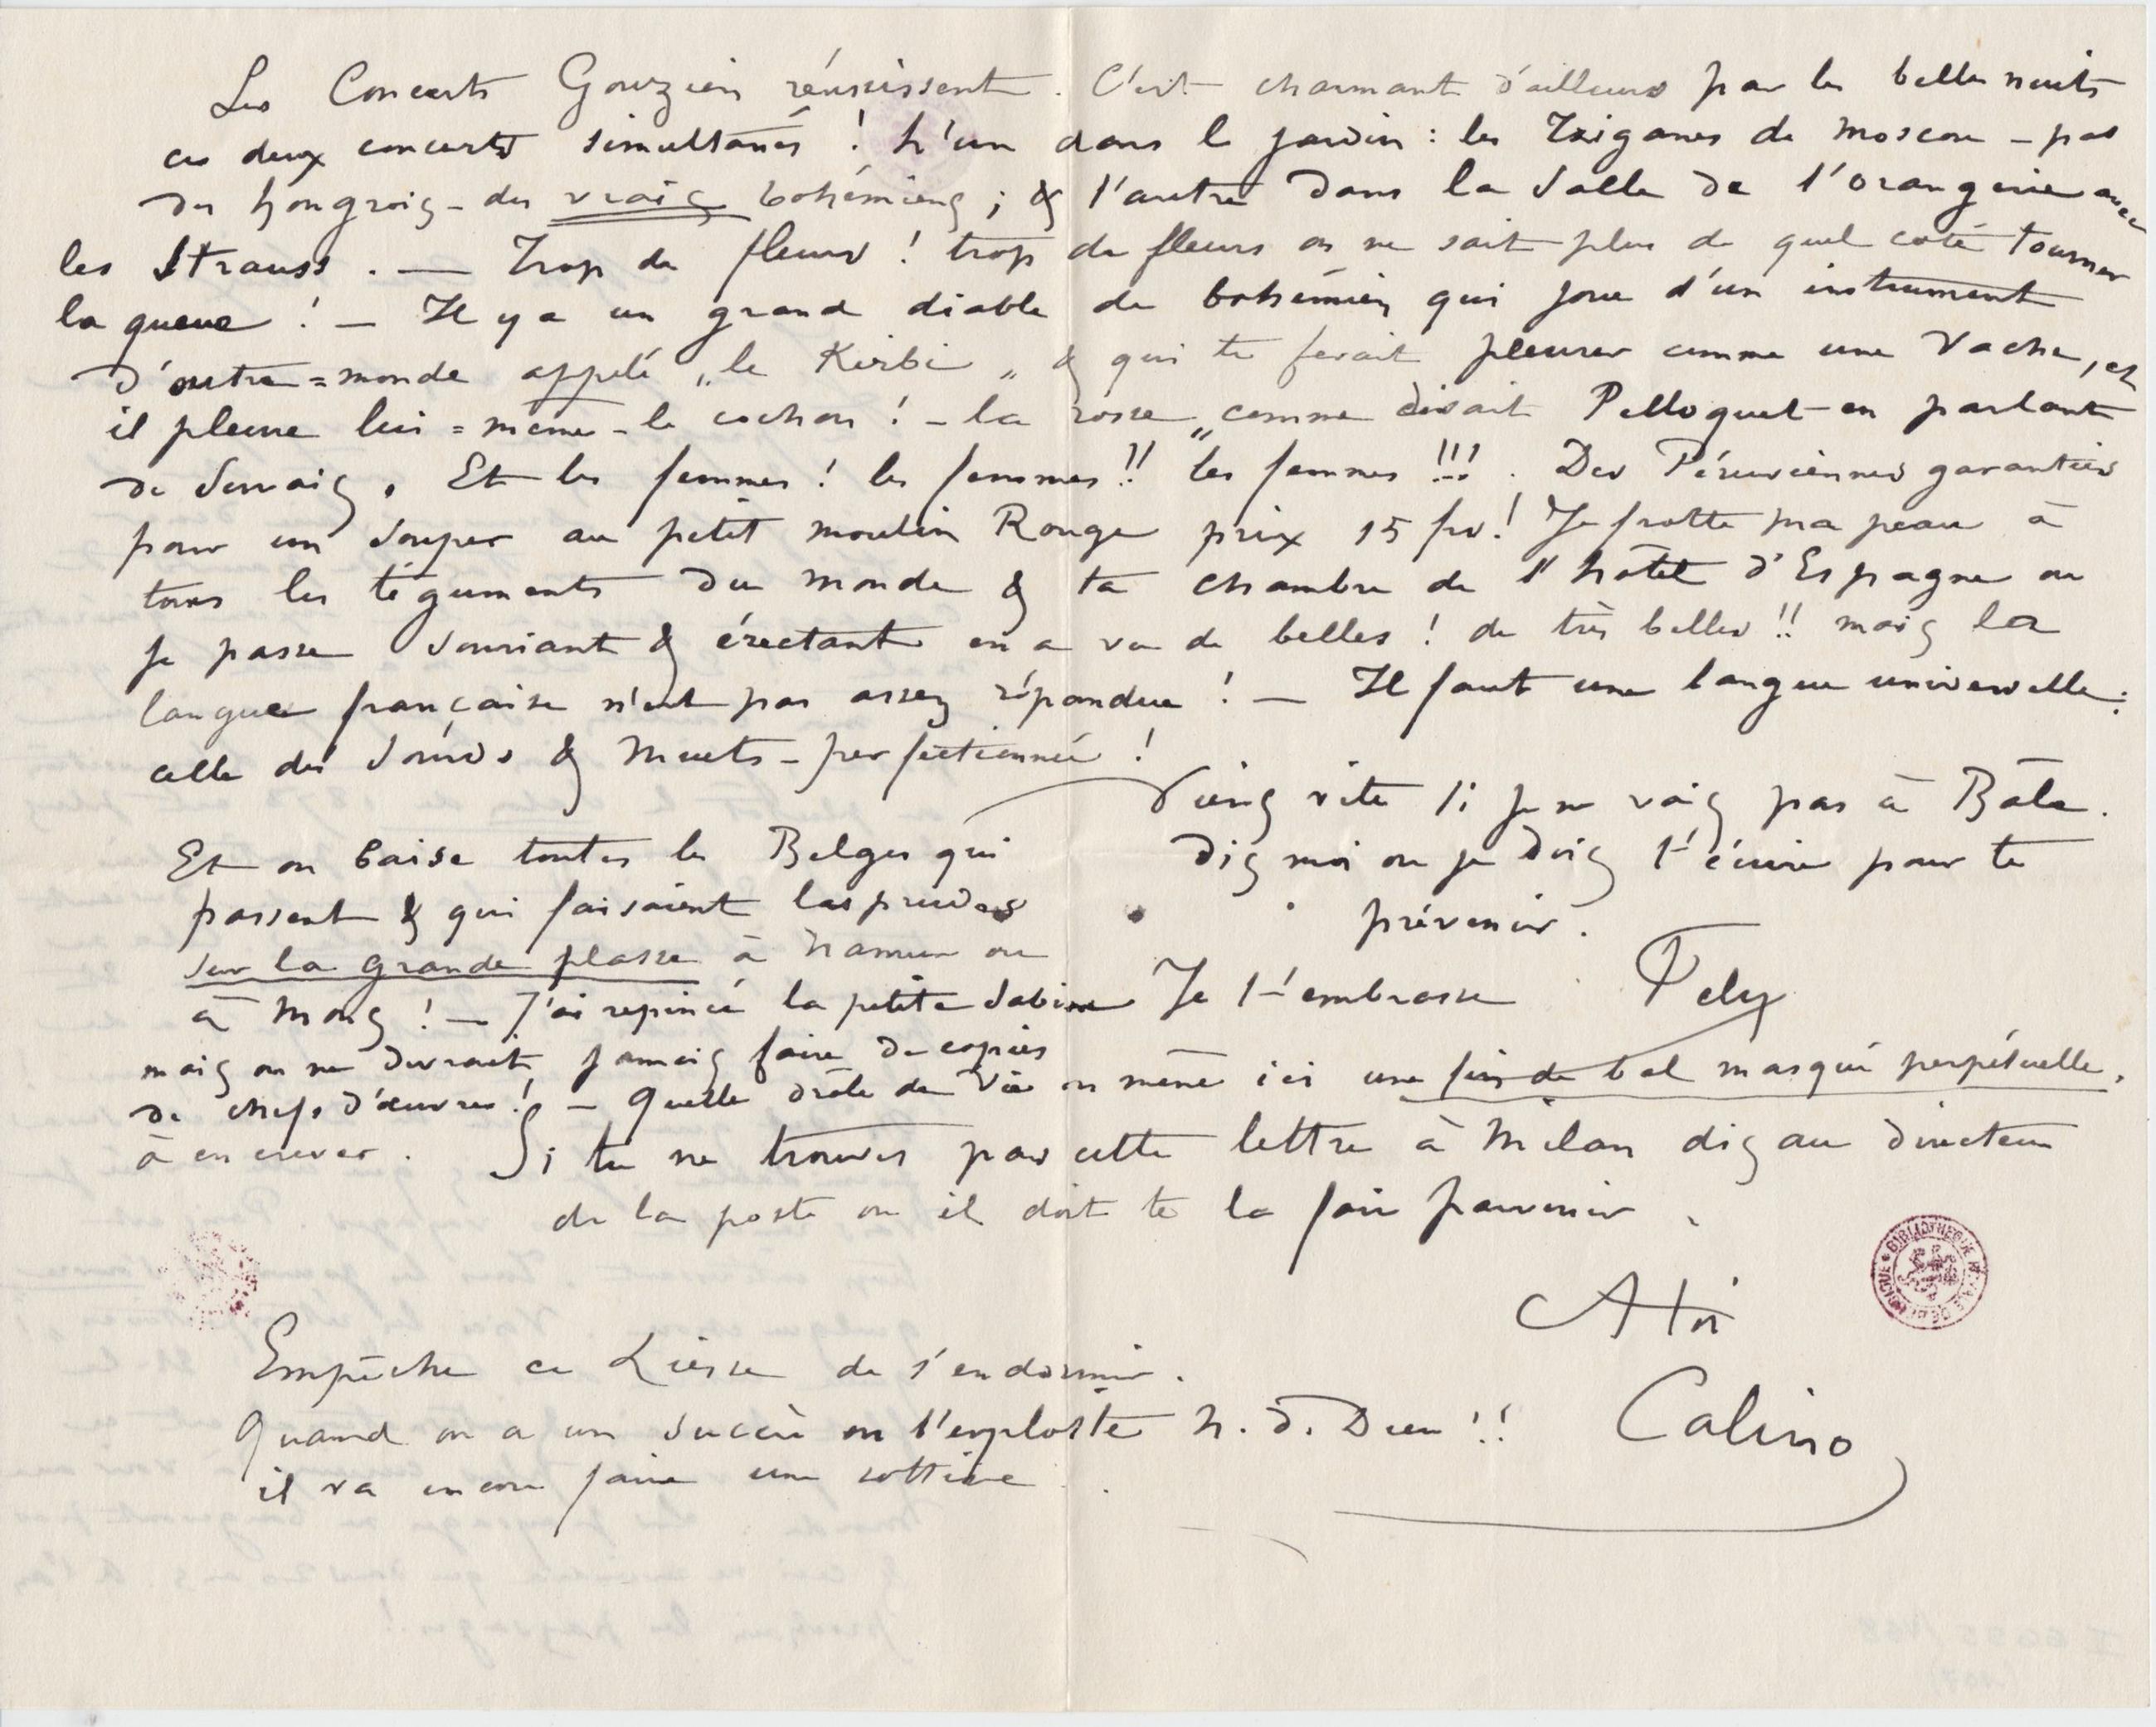 Les Concerts Gouzien réussissent. C'est charmant d'ailleurs par les belles nuits
ces deux concerts simultanés ! L'un dans le jardin : les Tziganes de Moscou – pas
des hongrois – des vraiς bohémiens ; & l'autre dans la Salle de l'orangerie avec
les Strauss. — Trop de fleurs ! trop de fleurs on ne sait plus de quel coté tourner
la queue ! – Il y a un grand diable de bohémien qui joue d'un instrument
d'outre=monde appelé „le Kirbi„ & qui te ferait pleurer comme une Vache, et
il pleure lui=même – le cochon ! – la rosse „ comme disait Pelloquet en parlant
de Servais. Et les femmes ! les femmes !! les femmes !!! . Des Péruviennes garanties
pour un souper au petit moulin Rouge prix 15 frs! Je frotte ma peau à
tous les téguments du monde & ta chambre de l'hôtel d'Espagne ou
je passe souriant & érectant en a vu de belles ! de très belles !! mais la
langue française n'est pas assez répandue ! – Il faut une langue universelle :
celle des Sourds & Muets – perfectionnée !
Et on baise toutes les Belges qui
passent & qui faisaient les prudes
sur la grande plasse à Namur ou
à Mons ! — J'ai repincé la petite Sabine
mais on ne devrait jamais faire de copies
de chefs d'œuvres ! – Quelle drôle de Vie on mène ici une fin de bal masqué perpétuelle,
à en crever.
Viens vite si je ne vais pas à Bâle.
Dis moi ou je dois t'écrire pour te
prévenir.
Je t'embrasse Fely
Si tu ne trouves pas cette lettre à Milan dis au directeur
de la poste ou il doit te la faire parvenir.
A toi
Calino
Empêche ce Liesse de s'endormir.
Quand on a un succès on l'exploite N. d. Dieu !!
il va encore faire une sottise.